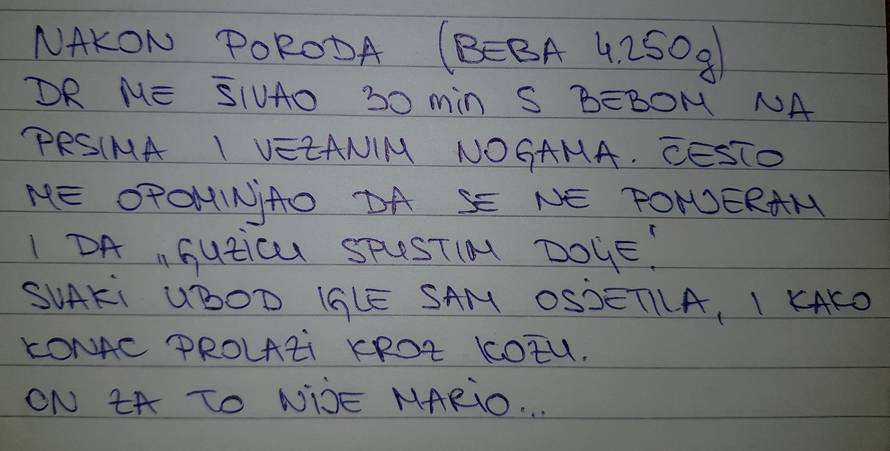 NAKON PORODA (BEBA 4.250g)
DR ME ŠIVAO 30 min S BEBOM NA
PRSIMA I VEZANIM NOGAMA. ČESTO
ME OPOMINjAO DA SE NE POMJERAM
I DA „GUZICU SPUSTIM DOLJE“.
SVAKI UBOD IGLE SAM OSJETILA, I KAKO
KONAC PROLAZI KROZ KOŽU.
ON ZA TO NIJE MARIO...